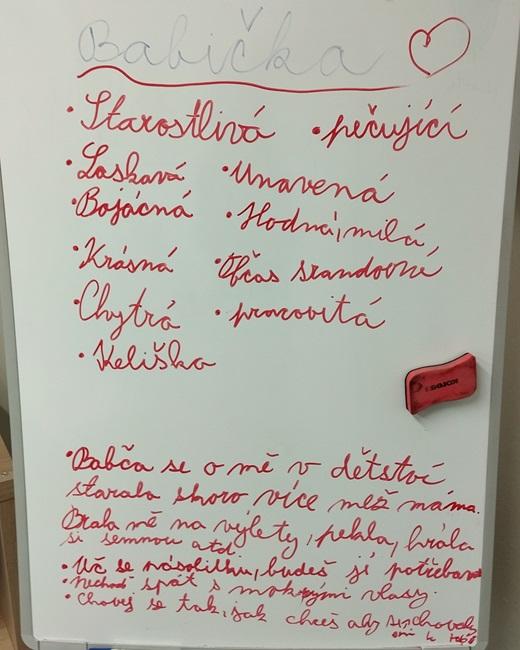 Babička
• Starostlivá • pečující
• Laskavá • Unavená
• Bojácná • Hodná, milá,
• Krásná • Občas srandovné
• Chytrá • pracovitá
• Keliška
• Babča se o mě v dětství
starala skoro více než máma.
Brala mě na výlety, pekla, hrála
si semnou atd.
• Uč se násobilku, budeš jí potřebovat
• Nechoď spát s mokrými vlasy.
• Chovej se tak, jak chceš aby se chovaly
oni k tobě